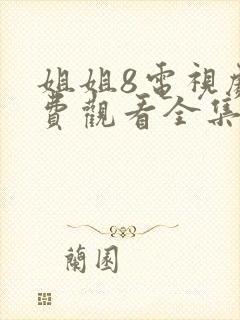 姐姐8電視
費觀看全集
蘭園